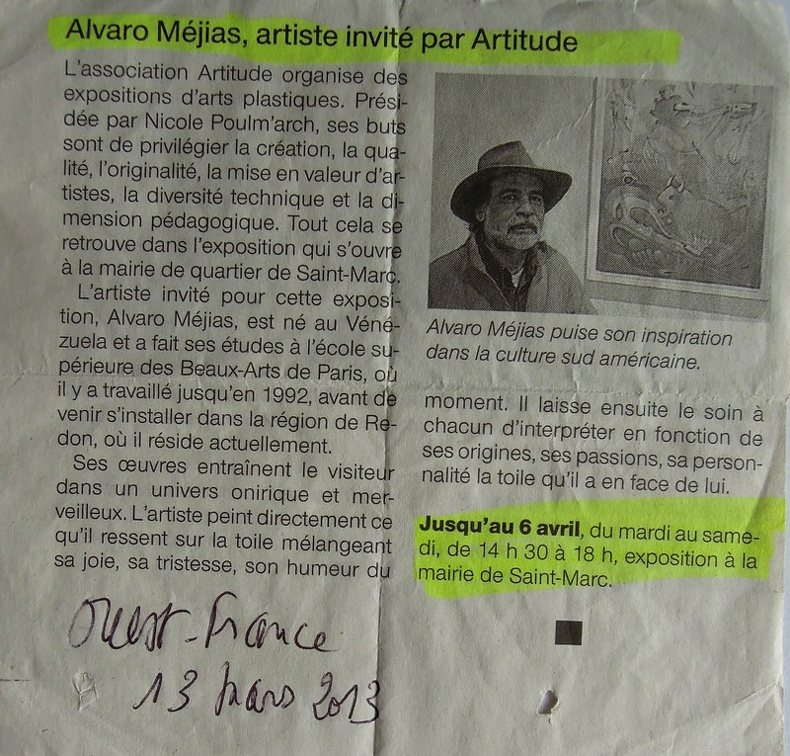 Alvaro Méjias, artiste invité par Artitude
L'association Artitude organise des
expositions d'arts plastiques. Prési-
dée par Nicole Poulm'arch, ses buts
sont de privilégier la création, la qua-
lité, l'originalité, la mise en valeur d'ar-
tistes, la diversité technique et la di-
mension pédagogique. Tout cela se
retrouve dans l'exposition qui s'ouvre
à la mairie de quartier de Saint-Marc.
L'artiste invité pour cette exposi-
tion, Alvaro Méjias, est né au Véné-
zuela et a fait ses études à l'école su-
périeure des Beaux-Arts de Paris, où
il y a travaillé jusqu'en 1992, avant de
venir s'installer dans la région de Re-
don, où il réside actuellement.
Ses œuvres entraînent le visiteur
dans un univers onirique et mer-
veilleux. L'artiste peint directement ce
qu'il ressent sur la toile mélangeant
sa joie, sa tristesse, son humeur du
Alvaro Méjias puise son inspiration
dans la culture sud américaine.
moment. Il laisse ensuite le soin à
chacun d'interpréter en fonction de
ses origines, ses passions, sa person-
nalité la toile qu'il a en face de lui.
Jusqu'au 6 avril, du mardi au same-
di, de 14 h 30 à 18 h, exposition à la
mairie de Saint-Marc.
Ouest-France
13 mars 2013